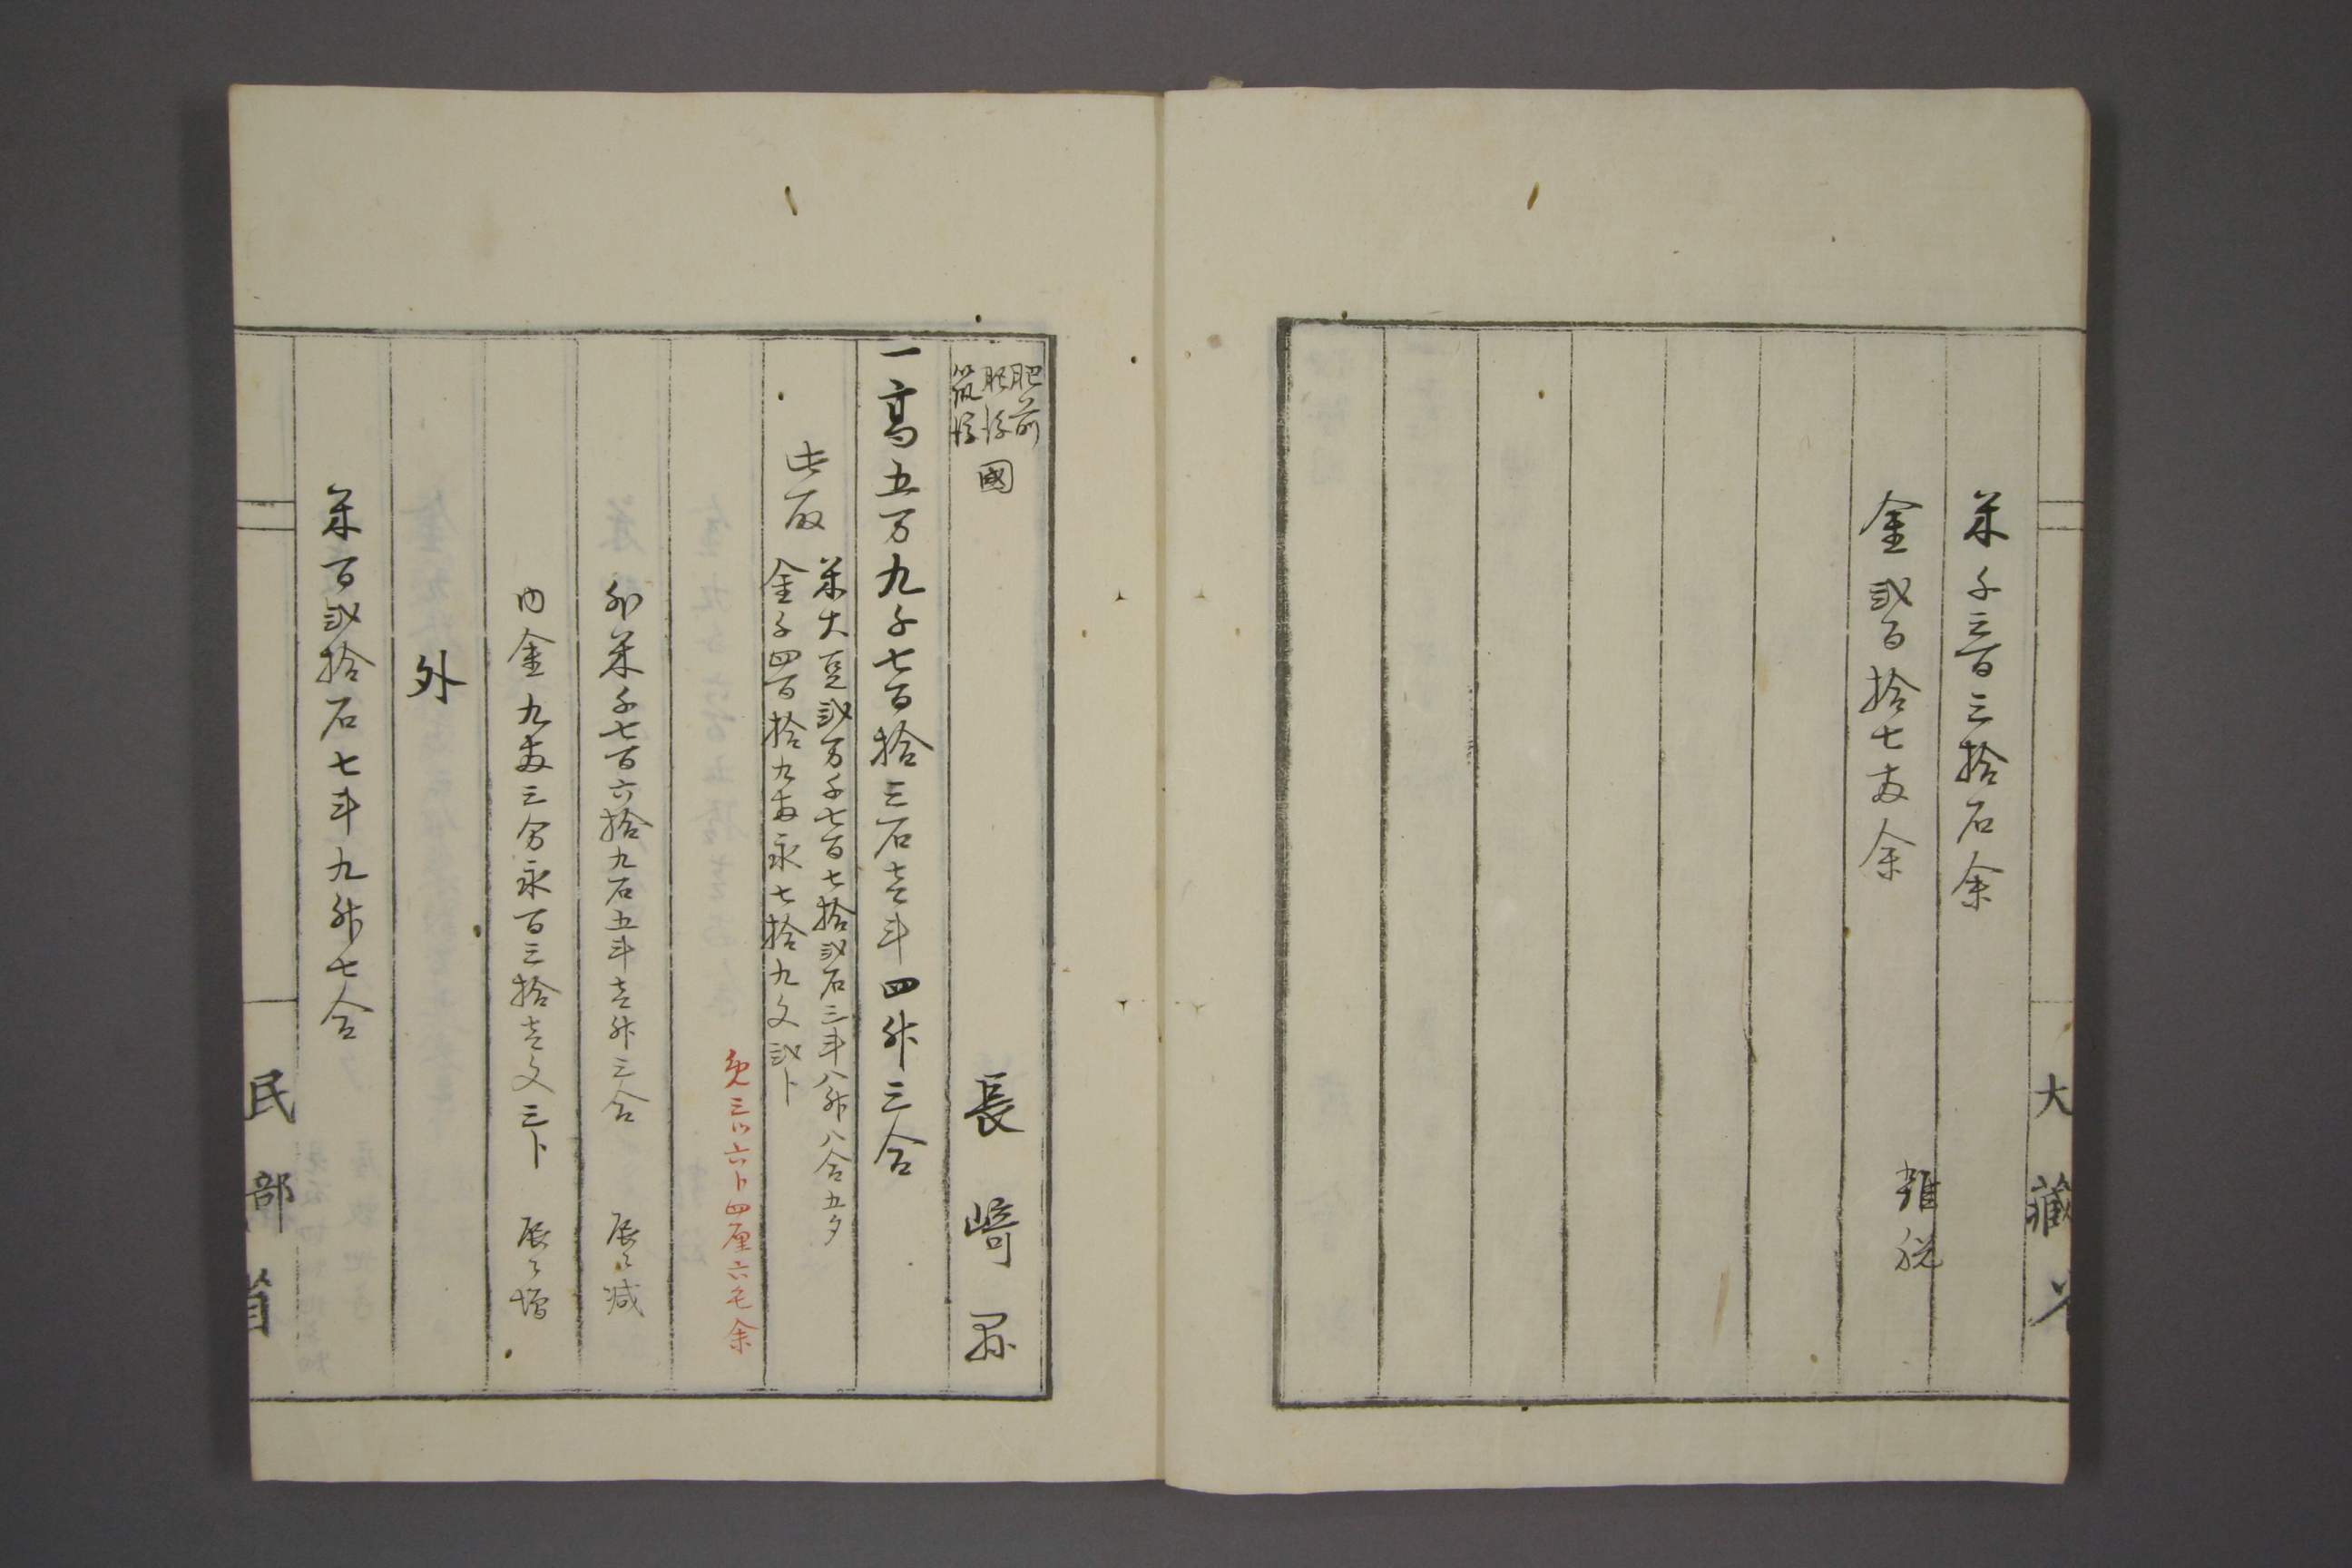 米千三百三拾石余
金弐百拾七両余
雑税
大藏
肥前
肥後
筑後
國
長崎県
一高五万九千七百拾三石壱斗四升三合
此取
米大豆弐万千七百七拾弐石三斗八升八合五夕
金千四百拾九両永七拾九文弐卜
免三ツ六卜四厘六毛余
外米千七百六拾九石五斗壱升三合
辰ゟ減
内金九両三分永百三拾壱文三卜
辰ゟ増
外
米百弐拾石七斗九升七合
民部省